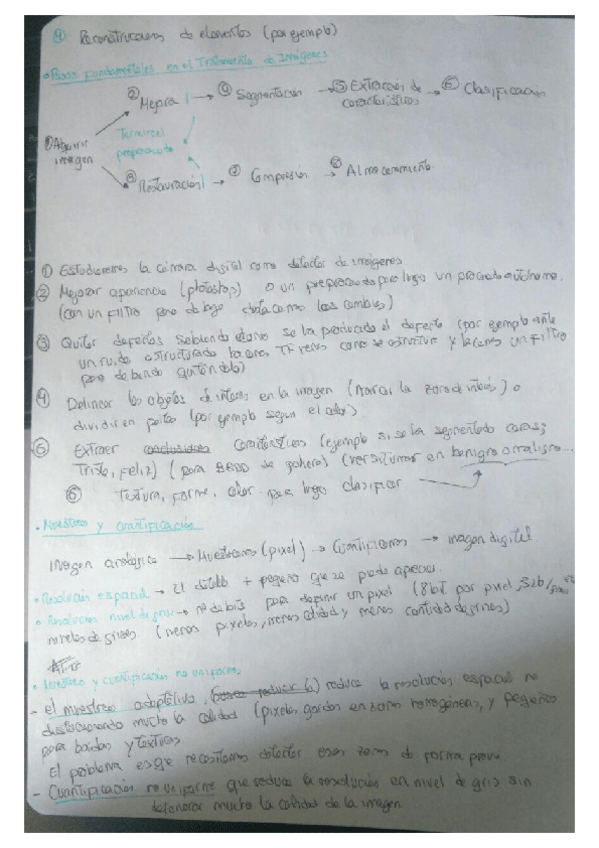 ④ Reconstrucciones de elementos (por ejemplo)
• Pasos fundamentales en el Tratamiento de Imágenes
② Mejora → ④ Segmentación → ⑤ Extracción de características → ⑥ Clasificación
① Adquirir imagen
③ Restauración → ⑦ Compresión → ⑧ Almacenamiento
① Estudiaremos la cámara digital como detector de imágenes
② Mejorar apariencia (photoshop) o un preprocesado para luego un procesado autónomo.
(con un filtro paso de bajo
③ Quitar defectos sabiendo cómo se ha producido el defecto (por ejemplo ante
un ruido estructurado hacemos TF vemos como se estructura y hacemos un filtro
para de banda quitándolo)
④ Delinear los objetos de interés en la imagen (marcar la zona de interés) o
dividir en partes (por ejemplo según el color)
⑤ Extraer características (ejemplo si se ha segmentado caras
Triste, feliz) (para de
⑥ Textura, forma, color para luego clasificar
• Muestreo y cuantificación
Imagen analógica → Muestreamos (pixel) → Cuantificamos → imagen digital
• Resolución espacial → El detalle + pequeño que se puede apreciar
• Resolución nivel de gris → nº de bits para definir un pixel (8 bit por pixel,
niveles de grises (menos pixeles, menos calidad y menos cantidad de grises)
• Muestreo y cuantificación no uniforme
- el muestreo adaptativo, reduce la resolución espacial no
distorsionando mucho la calidad (pixeles gordos en zonas homogéneas, y pequeños
para bordes y texturas
El problema es que necesitamos detectar esas zonas de forma previa
- Cuantificación no uniforme que reduce la resolución en nivel de gris sin
deteriorar mucho la calidad de la imagen